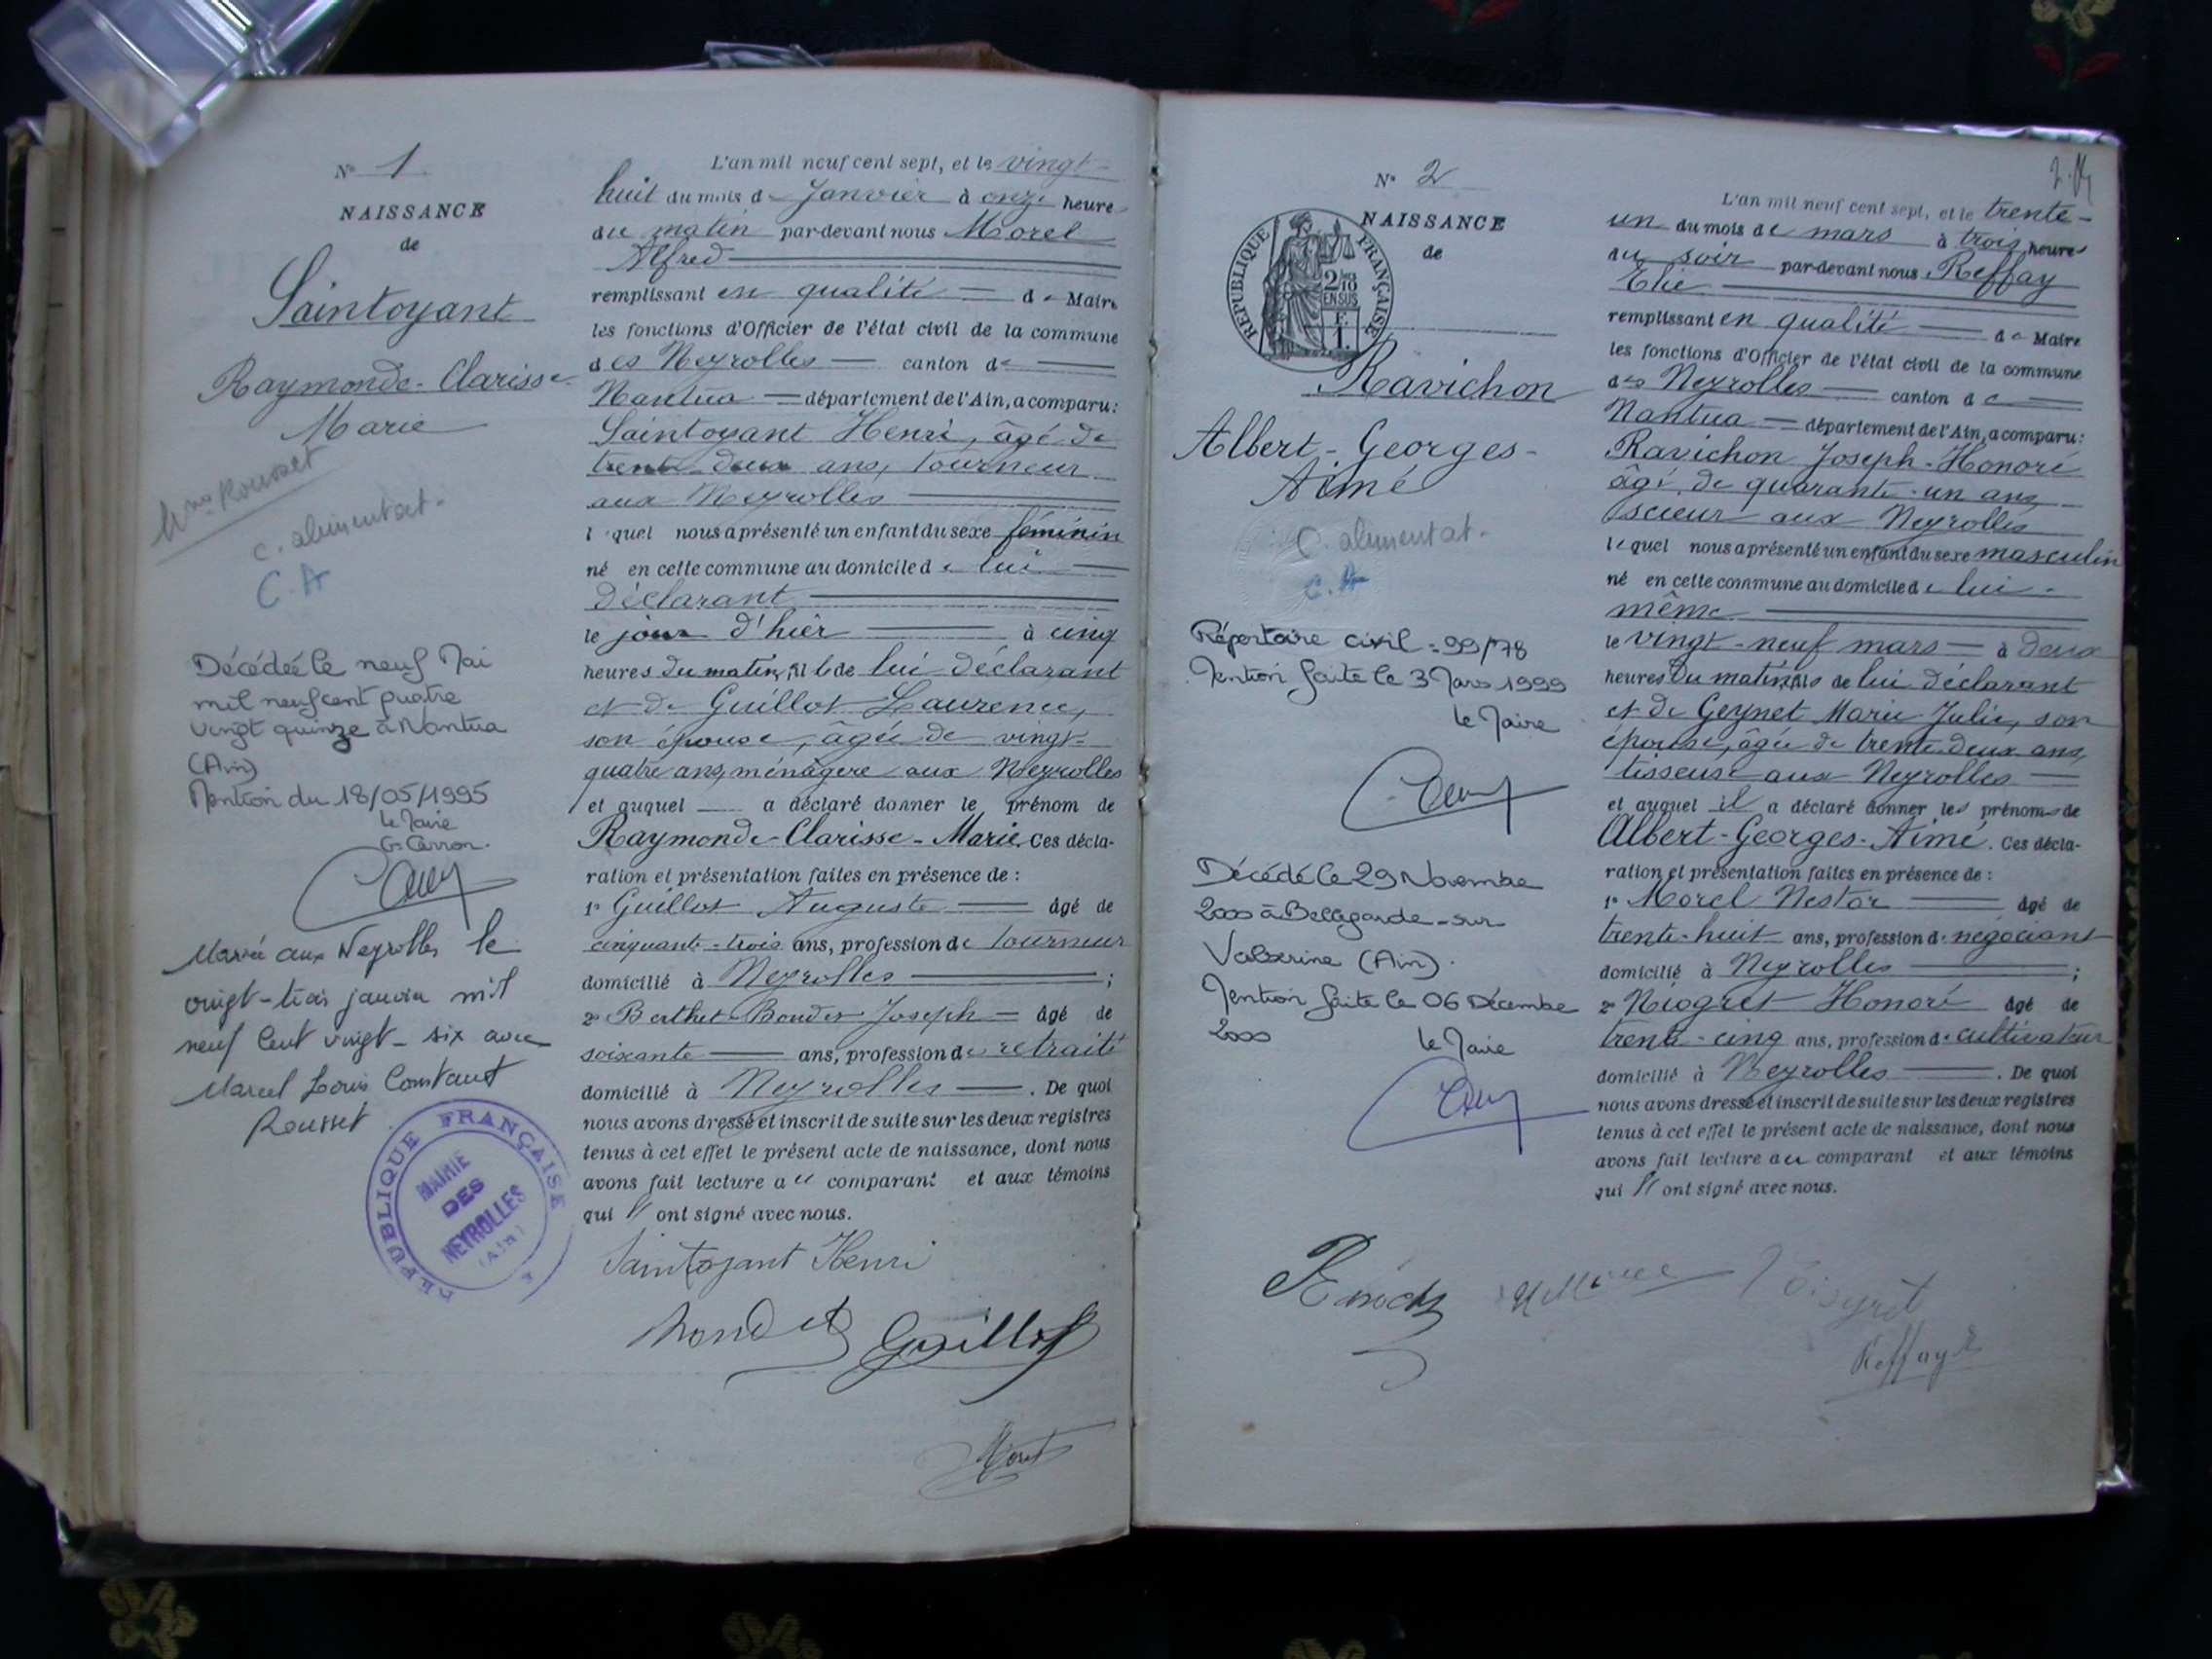 N° 1
NAISSANCE
de
Saintoyant
Raymonde-Clarisse
Marie
Mme Rousset
c. alimentat.
C.A
Décédée le neuf Mai
mil neuf cent quatre
vingt quinze à Nantua
(Ain)
Mention du 18/05/1995
Le Maire
G. Carron.
Mariée aux Neyrolles le
vingt-trois janvier mil
neuf cent vingt-six avec
Marcel Louis Constant
Rousset
REPUBLIQUE FRANÇAISE
MAIRIE
DES
NEYROLLES
(AIN)
L'an mil neuf cent sept, et le vingt-
huit du mois de Janvier à onze heures
du matin par-devant nous Morel
Alfred
remplissant en qualité de Maire
les fonctions d'Officier de l'état civil de la commune
des Neyrolles canton de
Nantua département de l'Ain, a comparu:
Saintoyant Henri, âgé de
trente-deux ans, tourneur
aux Neyrolles
lequel nous a présenté un enfant du sexe féminin
né en cette commune au domicile de lui
déclarant
le jour d'hier à cinq
heures du matin, fille de lui déclarant
et de Guillot Laurence,
son épouse, âgée de vingt-
quatre ans, ménagère aux Neyrolles
et auquel a déclaré donner le prénom de
Raymonde-Clarisse-Marie. Ces décla-
ration et présentation faites en présence de :
1° Guillot Auguste âgé de
cinquante-trois ans, profession de tourneur
domicilié à Neyrolles ;
2° Berthet-Bondet Joseph âgé de
soixante ans, profession de retraité
domicilié à Neyrolles. De quoi
nous avons dressé et inscrit de suite sur les deux registres
tenus à cet effet le présent acte de naissance, dont nous
avons fait lecture au comparant et aux témoins
qui ont signé avec nous.
Saintoyant Henri
Bondet Guillot
Morel
N° 2
NAISSANCE
de
REPUBLIQUE FRANÇAISE
2/10
EN SUS
F.
1.
Ravichon
Albert-Georges-
Aimé
C. alimentat.
C.A
Répertoire civil : 99/78
Mention faite le 3 Mars 1999
Le Maire
Décédé le 29 Novembre
2000 à Bellegarde-sur
Valserine (Ain).
Mention faite le 06 Décembre
2000
Le Maire
L'an mil neuf cent sept, et le trente-
un du mois de mars à trois heures
du soir par-devant nous Reffay
Elie
remplissant en qualité de Maire
les fonctions d'Officier de l'état civil de la commune
des Neyrolles canton de
Nantua département de l'Ain, a comparu:
Ravichon Joseph-Honoré
âgé de quarante-un ans,
scieur aux Neyrolles
lequel nous a présenté un enfant du sexe masculin
né en cette commune au domicile de lui-
même
le vingt-neuf mars à deux
heures du matin, fils de lui déclarant
et de Geynet Marie-Julie, son
épouse, âgée de trente-deux ans,
tisseuse aux Neyrolles
et auquel il a déclaré donner les prénoms de
Albert-Georges-Aimé. Ces décla-
ration et présentation faites en présence de :
1° Morel Nestor âgé de
trente-huit ans, profession de négociant
domicilié à Neyrolles ;
2° Niogret Honoré âgé de
trente-cinq ans, profession de cultivateur
domicilié à Neyrolles. De quoi
nous avons dressé et inscrit de suite sur les deux registres
tenus à cet effet le présent acte de naissance, dont nous
avons fait lecture au comparant et aux témoins
qui ont signé avec nous.
Reffay E